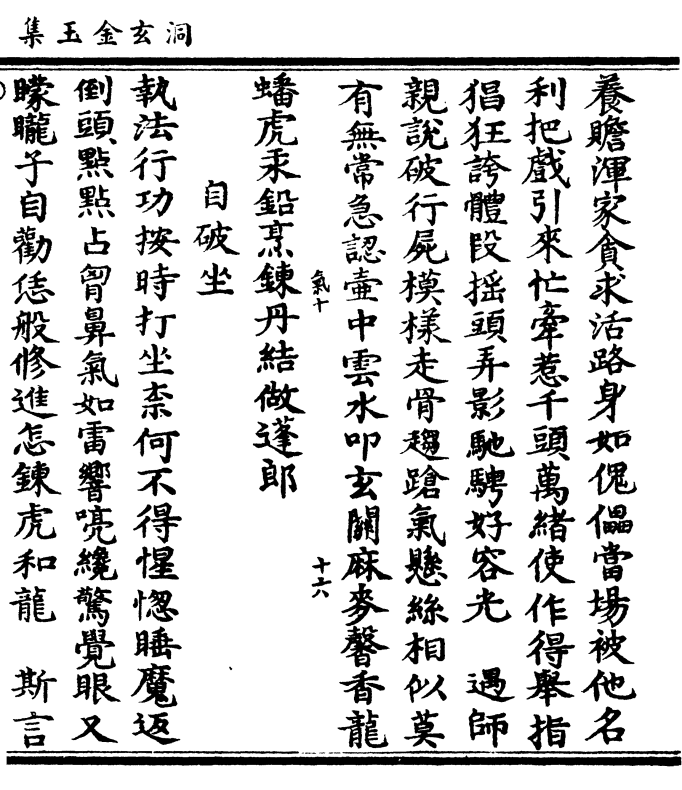 洞玄金玉集
養贍渾家貪求活路身如傀儡當場被他名
利把戲引來忙牽惹千頭萬緒使作得舉指
猖狂誇體段搖頭弄影馳騁好容光　遇師
親說破行屍模樣走骨趨蹌氣懸絲相似莫
有無常急認壷中雲水叩玄關麻麥馨香龍
氣十　十六
蟠虎汞鉛烹鍊丹結做蓬郎
自破坐
執法行功按時打坐柰何不得惺惚睡魔返
倒頭點點占胷鼻氣如雷響喨纔驚覺眼又
矇矓子自勸恁般修進怎鍊虎和龍　斯言